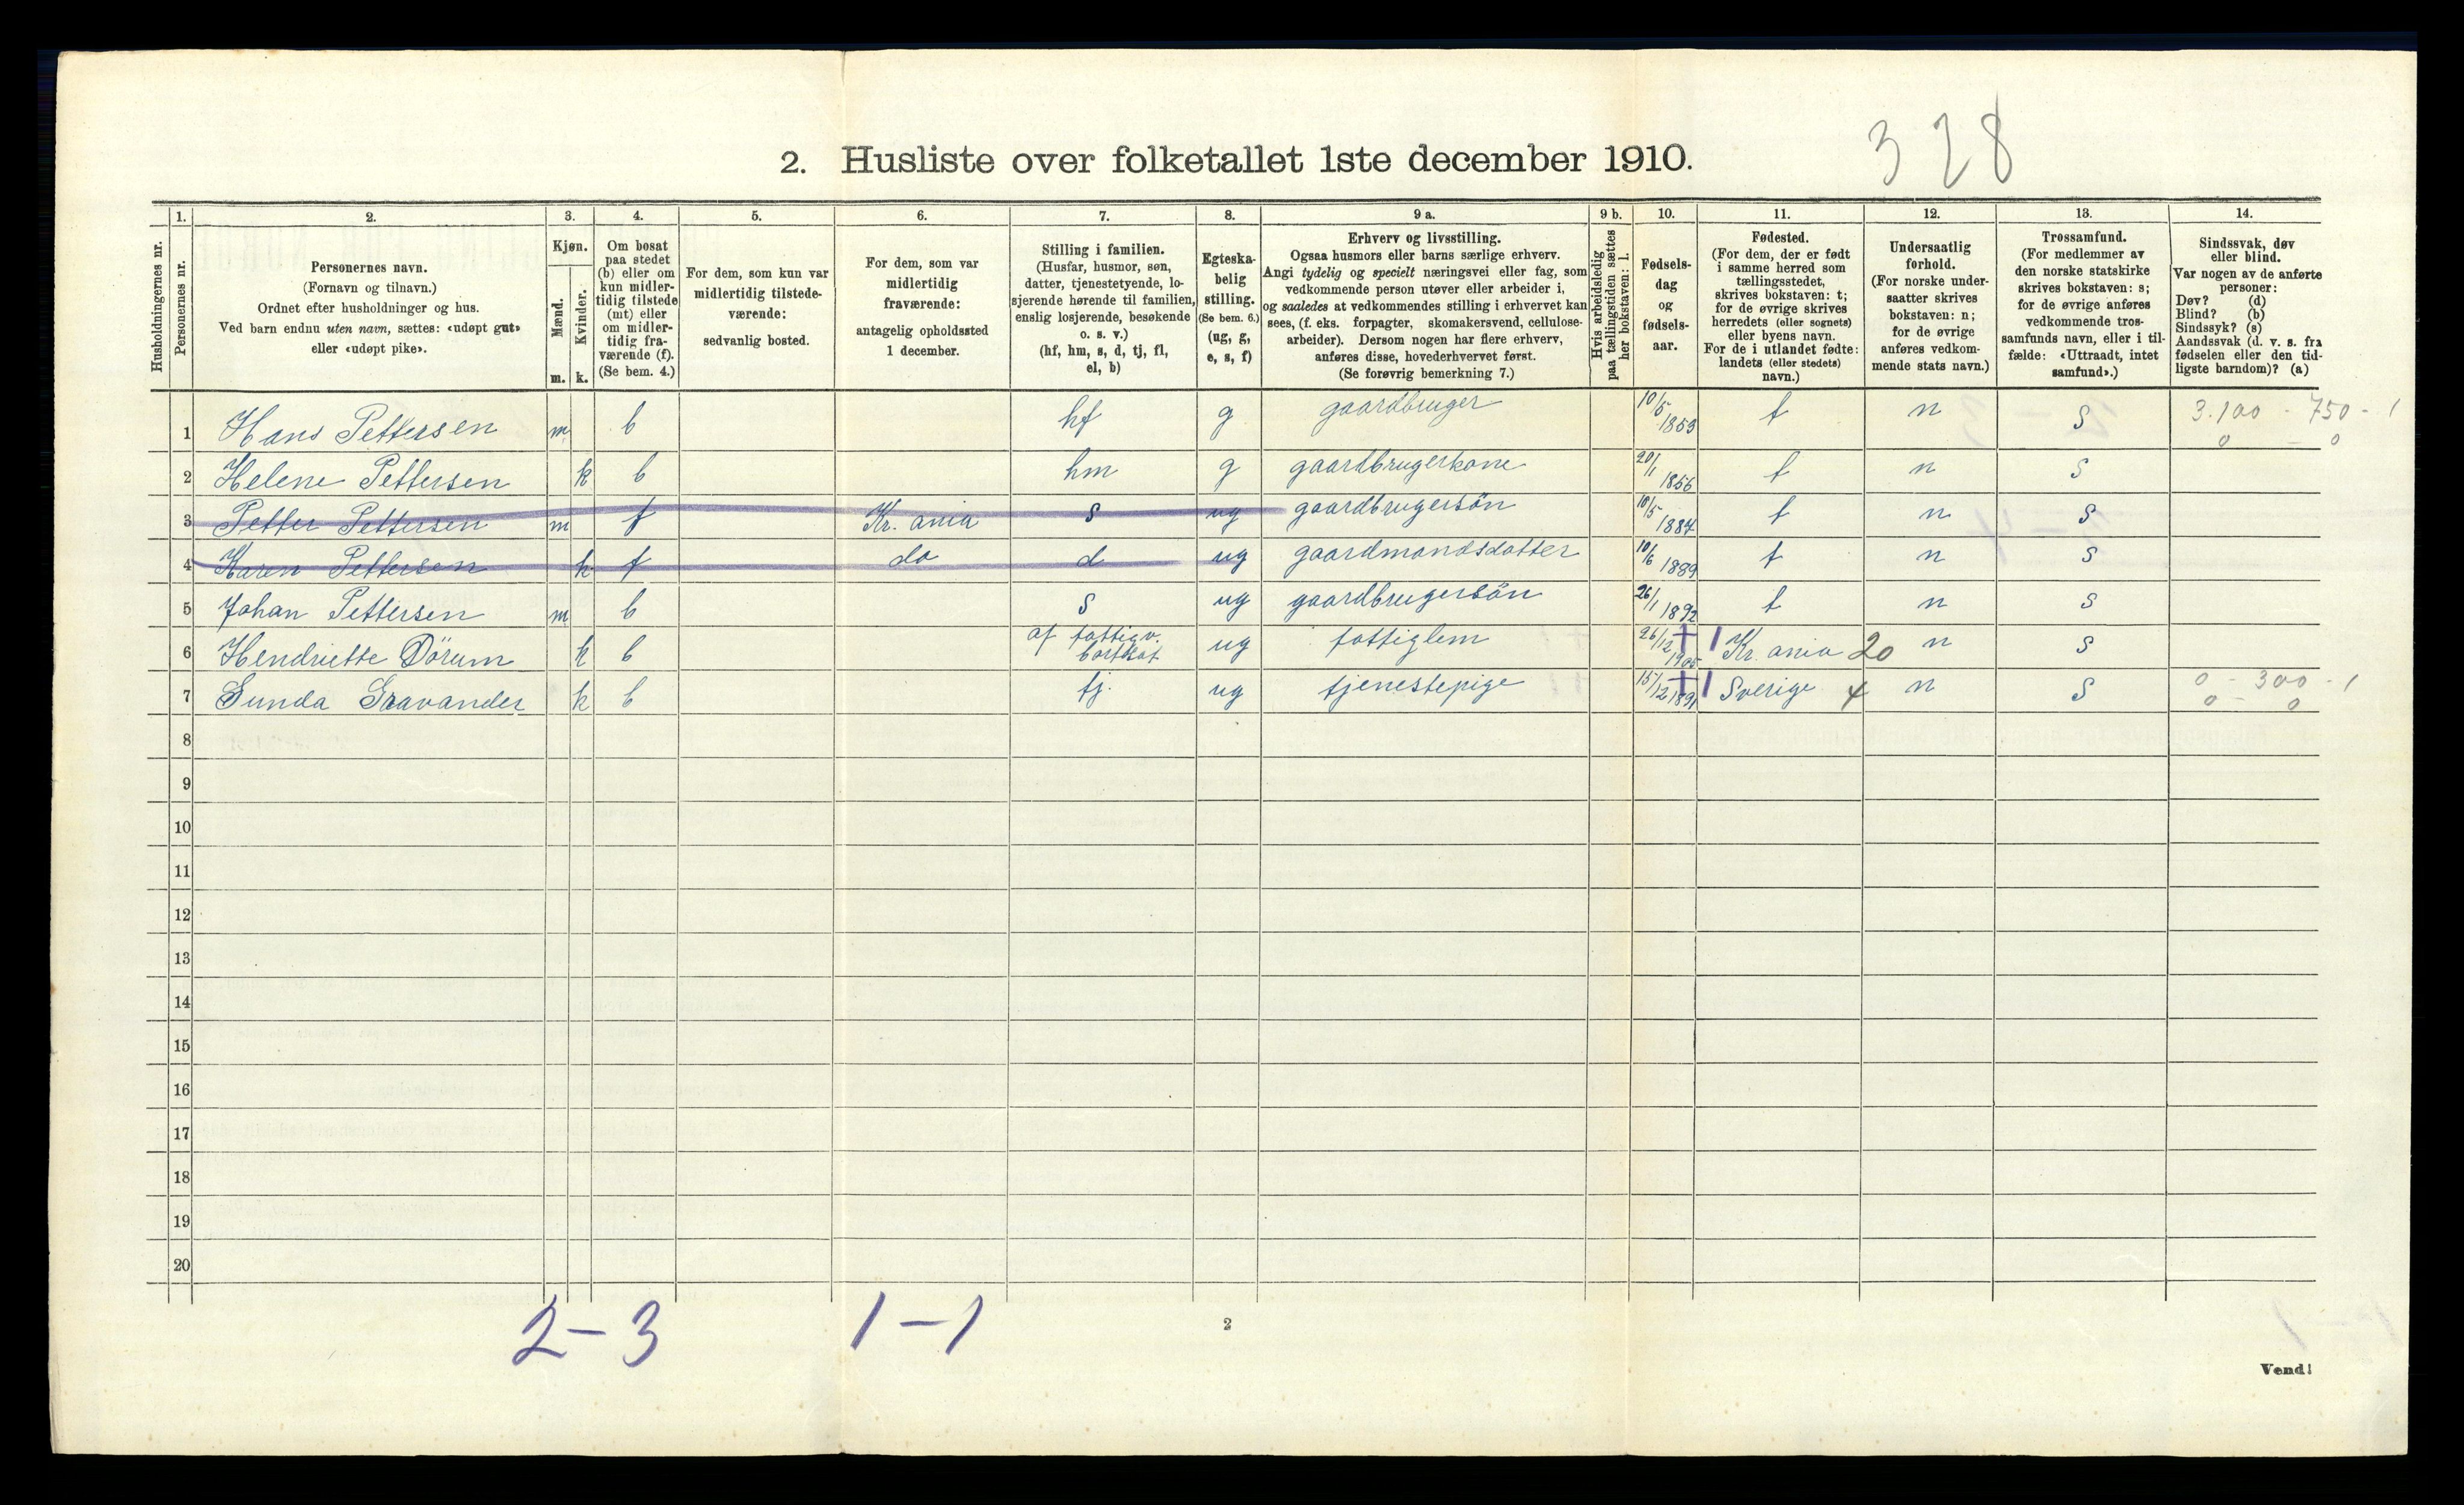 328
2. Husliste over folketallet 1ste december 1910.
Husholdningernes nr.
1. Personernes nr.
2. Personernes navn.
(Fornavn og tilnavn.)
Ordnet efter husholdninger og hus.
Ved barn endnu uten navn, sættes: «udøpt gut»
eller «udøpt pike».
3. Kjøn.
Mænd. m.
Kvinder. k.
4. Om bosat
paa stedet
(b) eller om
kun midler-
tidig tilstede
(mt) eller
om midler-
tidig fra-
værende (f).
(Se bem. 4.)
5. For dem, som kun var
midlertidig tilstede-
værende:
sedvanlig bosted.
6. For dem, som var
midlertidig
fraværende:
antagelig opholdssted
1 december.
7. Stilling i familien.
(Husfar, husmor, søn,
datter, tjenestetyende, lo-
sjerende hørende til familien,
enslig losjerende, besøkende
o. s. v.)
(hf, hm, s, d, tj, fl,
el, b)
8. Egteska-
belig
stilling.
(Se bem. 6.)
(ug, g,
e, s, f)
9 a. Erhverv og livsstilling.
Ogsaa husmors eller barns særlige erhverv.
Angi tydelig og specielt næringsvei eller fag, som
vedkommende person utøver eller arbeider i,
og saaledes at vedkommendes stilling i erhvervet kan
sees, (f. eks. forpagter, skomakersvend, cellulose-
arbeider). Dersom nogen har flere erhverv,
anføres disse, hovederhvervet først.
(Se forøvrig bemerkning 7.)
9 b. Hvis arbeidsledig
paa tællingstiden sættes
her bokstaven: l.
10. Fødsels-
dag
og
fødsels-
aar.
11. Fødested.
(For dem, der er født
i samme herred som
tællingsstedet,
skrives bokstaven: t;
for de øvrige skrives
herredets (eller sognets)
eller byens navn.
For de i utlandet fødte:
landets (eller stedets)
navn.)
12. Undersaatlig
forhold.
(For norske under-
saatter skrives
bokstaven: n;
for de øvrige
anføres vedkom-
mende stats navn.)
13. Trossamfund.
(For medlemmer av
den norske statskirke
skrives bokstaven: s;
for de øvrige anføres
vedkommende tros-
samfunds navn, eller i til-
fælde: «Uttraadt, intet
samfund».)
14. Sindssvak, døv
eller blind.
Var nogen av de anførte
personer:
Døv? (d)
Blind? (b)
Sindssyk? (s)
Aandssvak (d. v. s. fra
fødselen eller den tid-
ligste barndom)? (a)
1 Hans Pettersen m b hf g gaardbruger 10/5 1853 t n s 3.100 - 750 - 1
0 - 0
2 Helene Pettersen k b hm g gaardbrugerkone 20/1 1856 t n s
3 Petter Pettersen m f Kr. ania s ug gaardbrugersön 10/5 1884 t n s
4 Karen Pettersen k f do d ug gaardmandsdatter 10/6 1889 t n s
5 Johan Pettersen m b s ug gaardbrugersön 26/1 1892 t n s
6 Hendriette Dörum k b af fattigv. bortsat ug fattiglem 26/12 1905 Kr. ania 20 n s
7 Gunda Gravander k b tj. ug tjenestepige 15/12 1891 Sverige 4 n s 0 - 300 - 1
0 - 0
8
9
10
11
12
13
14
15
16
17
18
19
20
2 - 3 1 - 1
2
Vend!